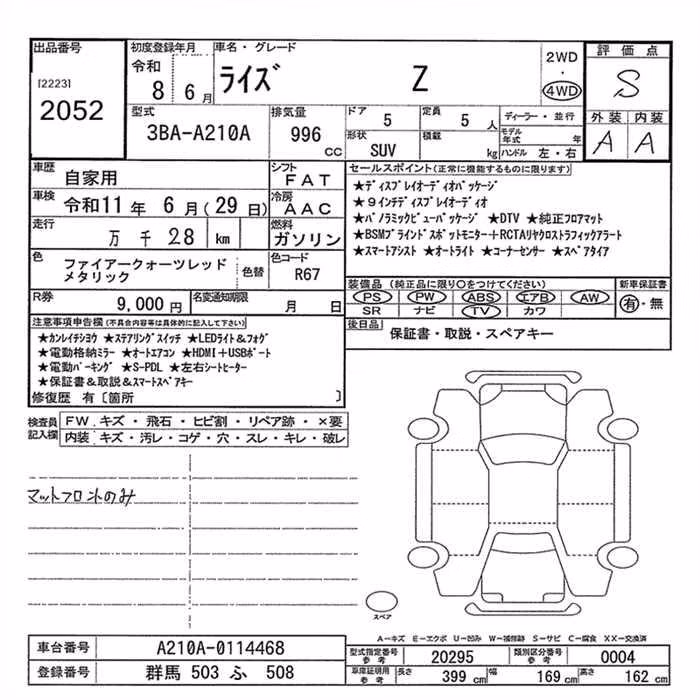 出品番号
[2223]
2052
初度登録年月
令和
8 6 月
車名・グレード
ライズ Z
2WD
・
4WD
評価点
S
外装 内装
A A
型式
3BA-A210A
排気量
996
cc
ドア 5
定員 5 人
形状
SUV
積載
kg
ディーラー・並行
モデル
年式 年
ハンドル 左・右
車歴
自家用
シフト
FAT
車検 令和11年 6月(29日)
冷房
AAC
走行
万 千 28 km
燃料
ガソリン
色
ファイアークォーツレッド
メタリック
色替
色コード
R67
R券
9,000円
名変通知期限
月 日
セールスポイント(正常に機能するものに限ります)
★ディスプレイオーディオパッケージ
★9インチディスプレイオーディオ
★パノラミックビューパッケージ ★DTV ★純正フロアマット
★BSMブラインドスポットモニター+RCTAリヤクロストラフィックアラート
★スマートアシスト ★オートライト ★コーナーセンサー ★スペアタイア
装備品(純正品に限り○をつけてください)
PS PW ABS エアB AW
SR ナビ TV カワ
新車保証書
有・無
後日品
保証書・取説・スペアキー
注意事項申告欄(不具合内容等は具体的に記入して下さい)
★カンレイチシヨウ ★ステアリングスイッチ ★LEDライト&フォグ
★電動格納ミラー ★オートエアコン ★HDMI+USBポート
★電動パーキング ★S-PDL ★左右シートヒーター
★保証書&取説&スマートスペアキー
修復歴 有〔箇所 〕
検査員
記入欄
FW.キズ・飛石・ヒビ割・リペア跡・×要
内装・キズ・汚レ・コゲ・穴・スレ・キレ・破レ
マットフロントのみ
スペア
A―キズ E―エクボ U―凹み W―補修跡 S―サビ C―腐食 XX―交換済
車台番号 A210A-0114468
登録番号 群馬 503 ふ 508
型式指定番号
参考
20295
類別区分番号
参考
0004
車庫証明用
参考
長さ 399 cm 幅 169 cm 高さ 162 cm